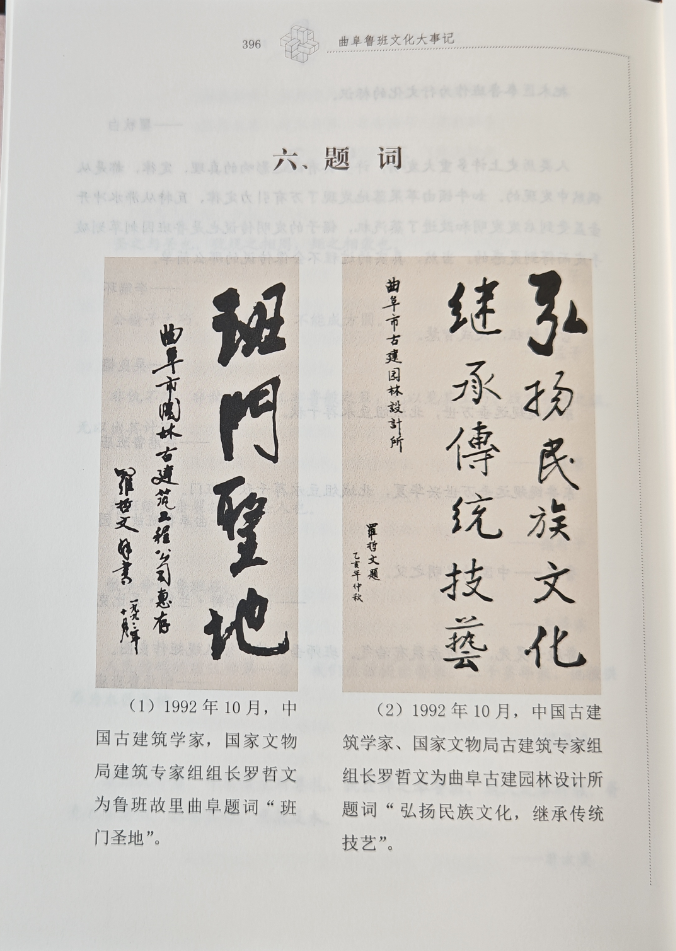 396
曲阜鲁班文化大事记
六、题 词
班門聖地
曲阜市園林古建筑工程公司惠存
羅哲文
書
一九九二年
十月
弘扬民族文化
继承傳统技藝
曲阜市古建园林設計所
羅哲文题
乙亥年仲秋
（1）1992 年 10 月，中
国古建筑学家，国家文物
局建筑专家组组长罗哲文
为鲁班故里曲阜题词“班
门圣地”。
（2）1992 年 10 月，中国古建
筑学家、国家文物局古建筑专家组
组长罗哲文为曲阜古建园林设计所
题词“弘扬民族文化，继承传统
技艺”。